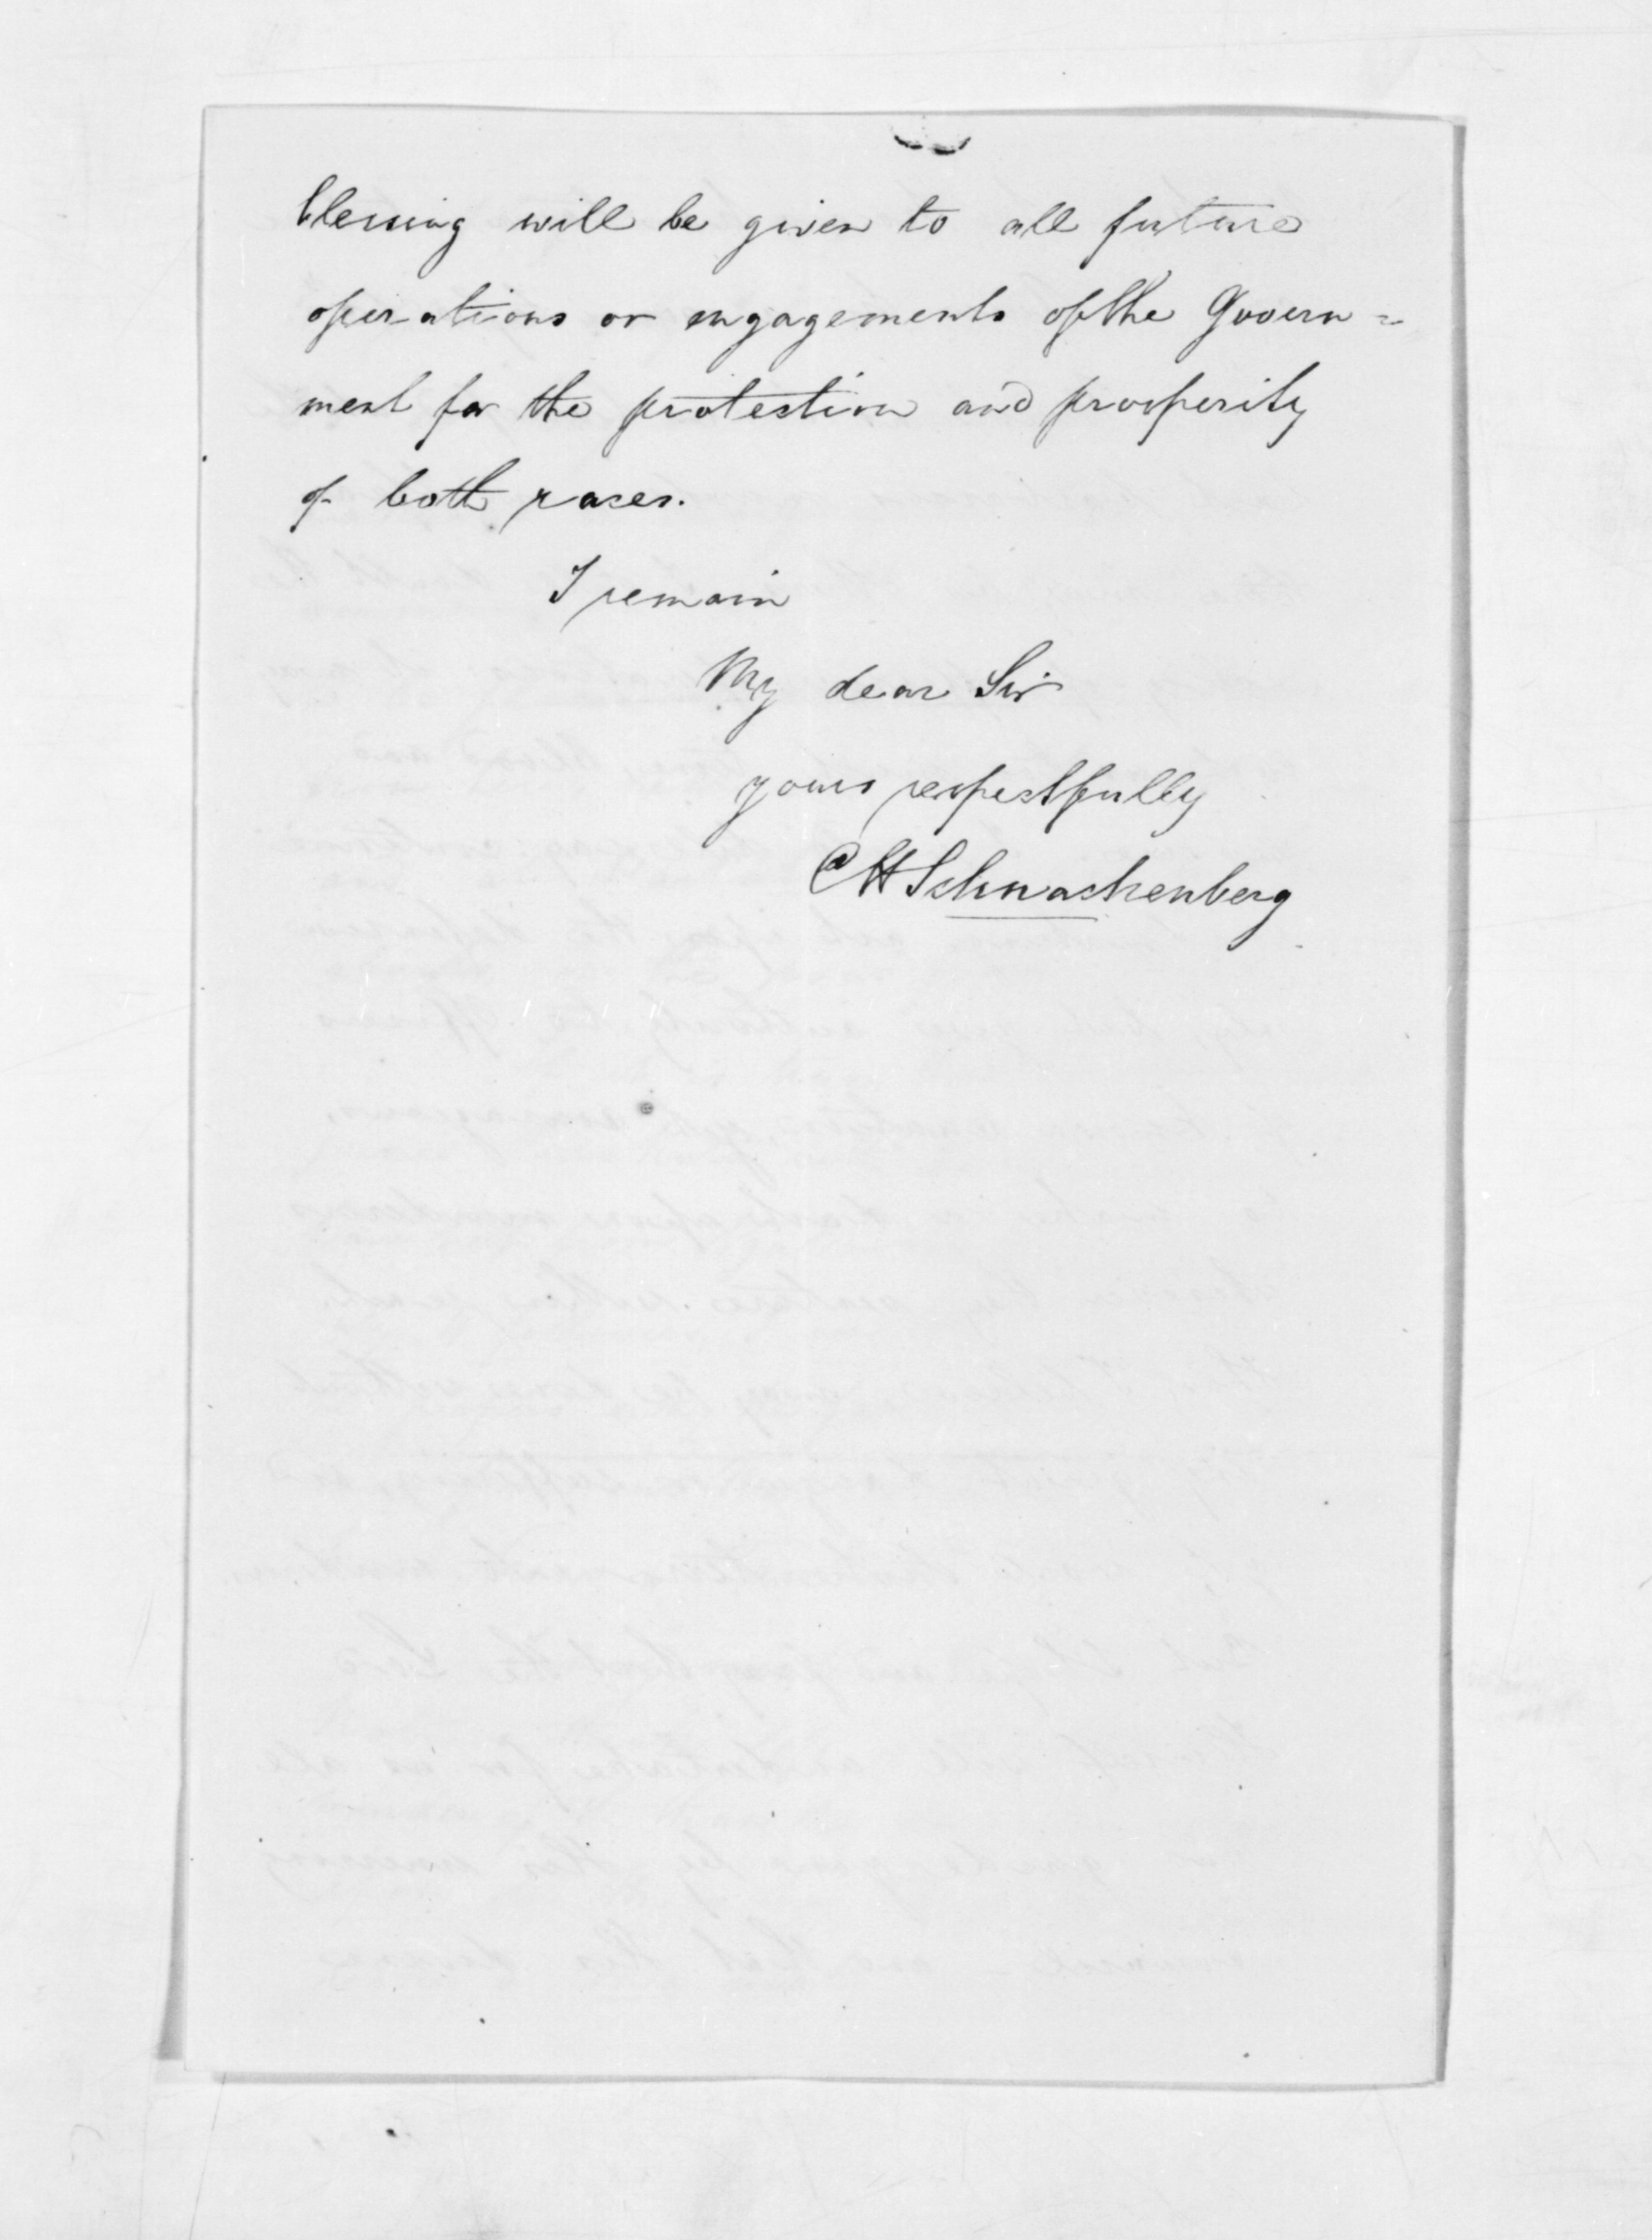 blessing will be given to all future
operations or engagements of the Govern=
ment for the protection and prosperity
of both races.
I remain
My dear Sir
yours respectfully
CH Schnackenberg